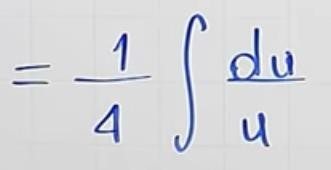 = 1/4 ∫ du/u